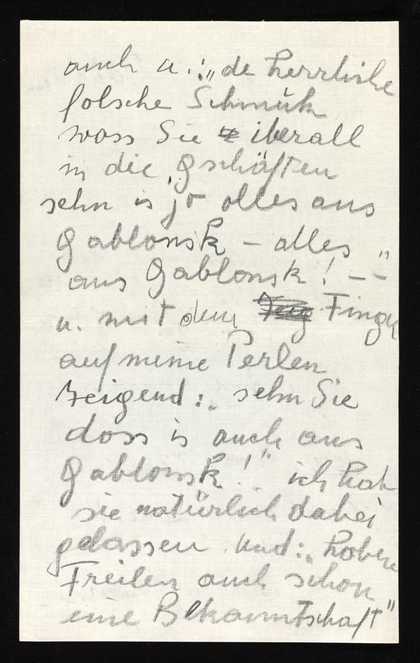 auch u.: „de herrliche
folsche Schmuk
woss Sie iberall
in die gschäften
sehn is jo olles aus
Gablonsk – alles
aus Gablonsk! – –"
u. mit dem Finger
auf meine Perlen
zeigend: „sehn Sie
doss is auch aus
Gablonsk!" ich hab
sie natürlich dabei
gelassen und: „hoben
Freilen auch schon
eine Bekanntschaft"